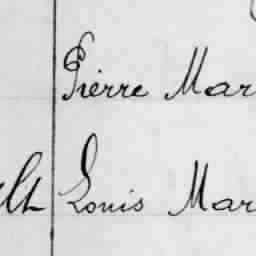 Pierre Mar
Louis Mar